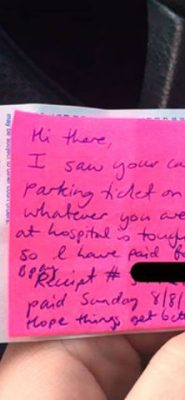 Hi there,
I saw your ca
parking ticket on
whatever you are
at hospital is tough
so I have paid fo
Receipt #
paid Sunday 8/8/
Hope things get bett